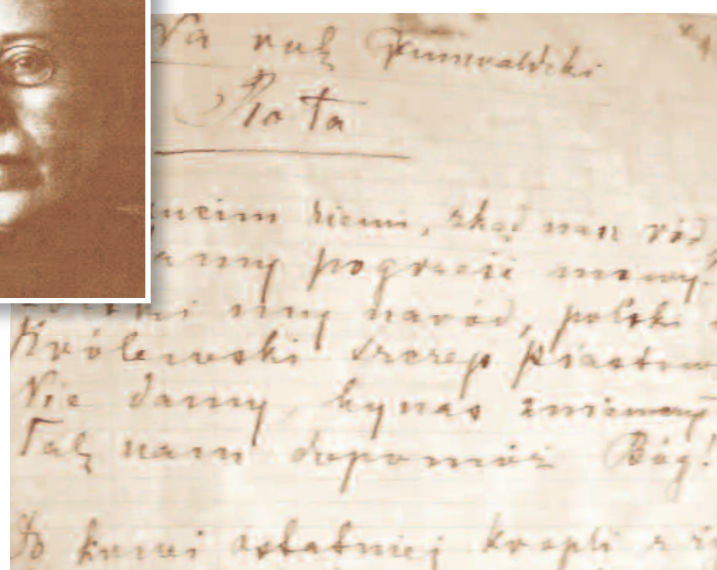 Na rok Grunwaldzki
Rota
rzucim ziemi, skąd nasz ród,
damy pogrześć mowy!
Polski my naród, polski
Królewski szczep Piastowy
Nie damy, by nas zniemczył
Tak nam dopomóż Bóg!
Do krwi ostatniej kropli z ży